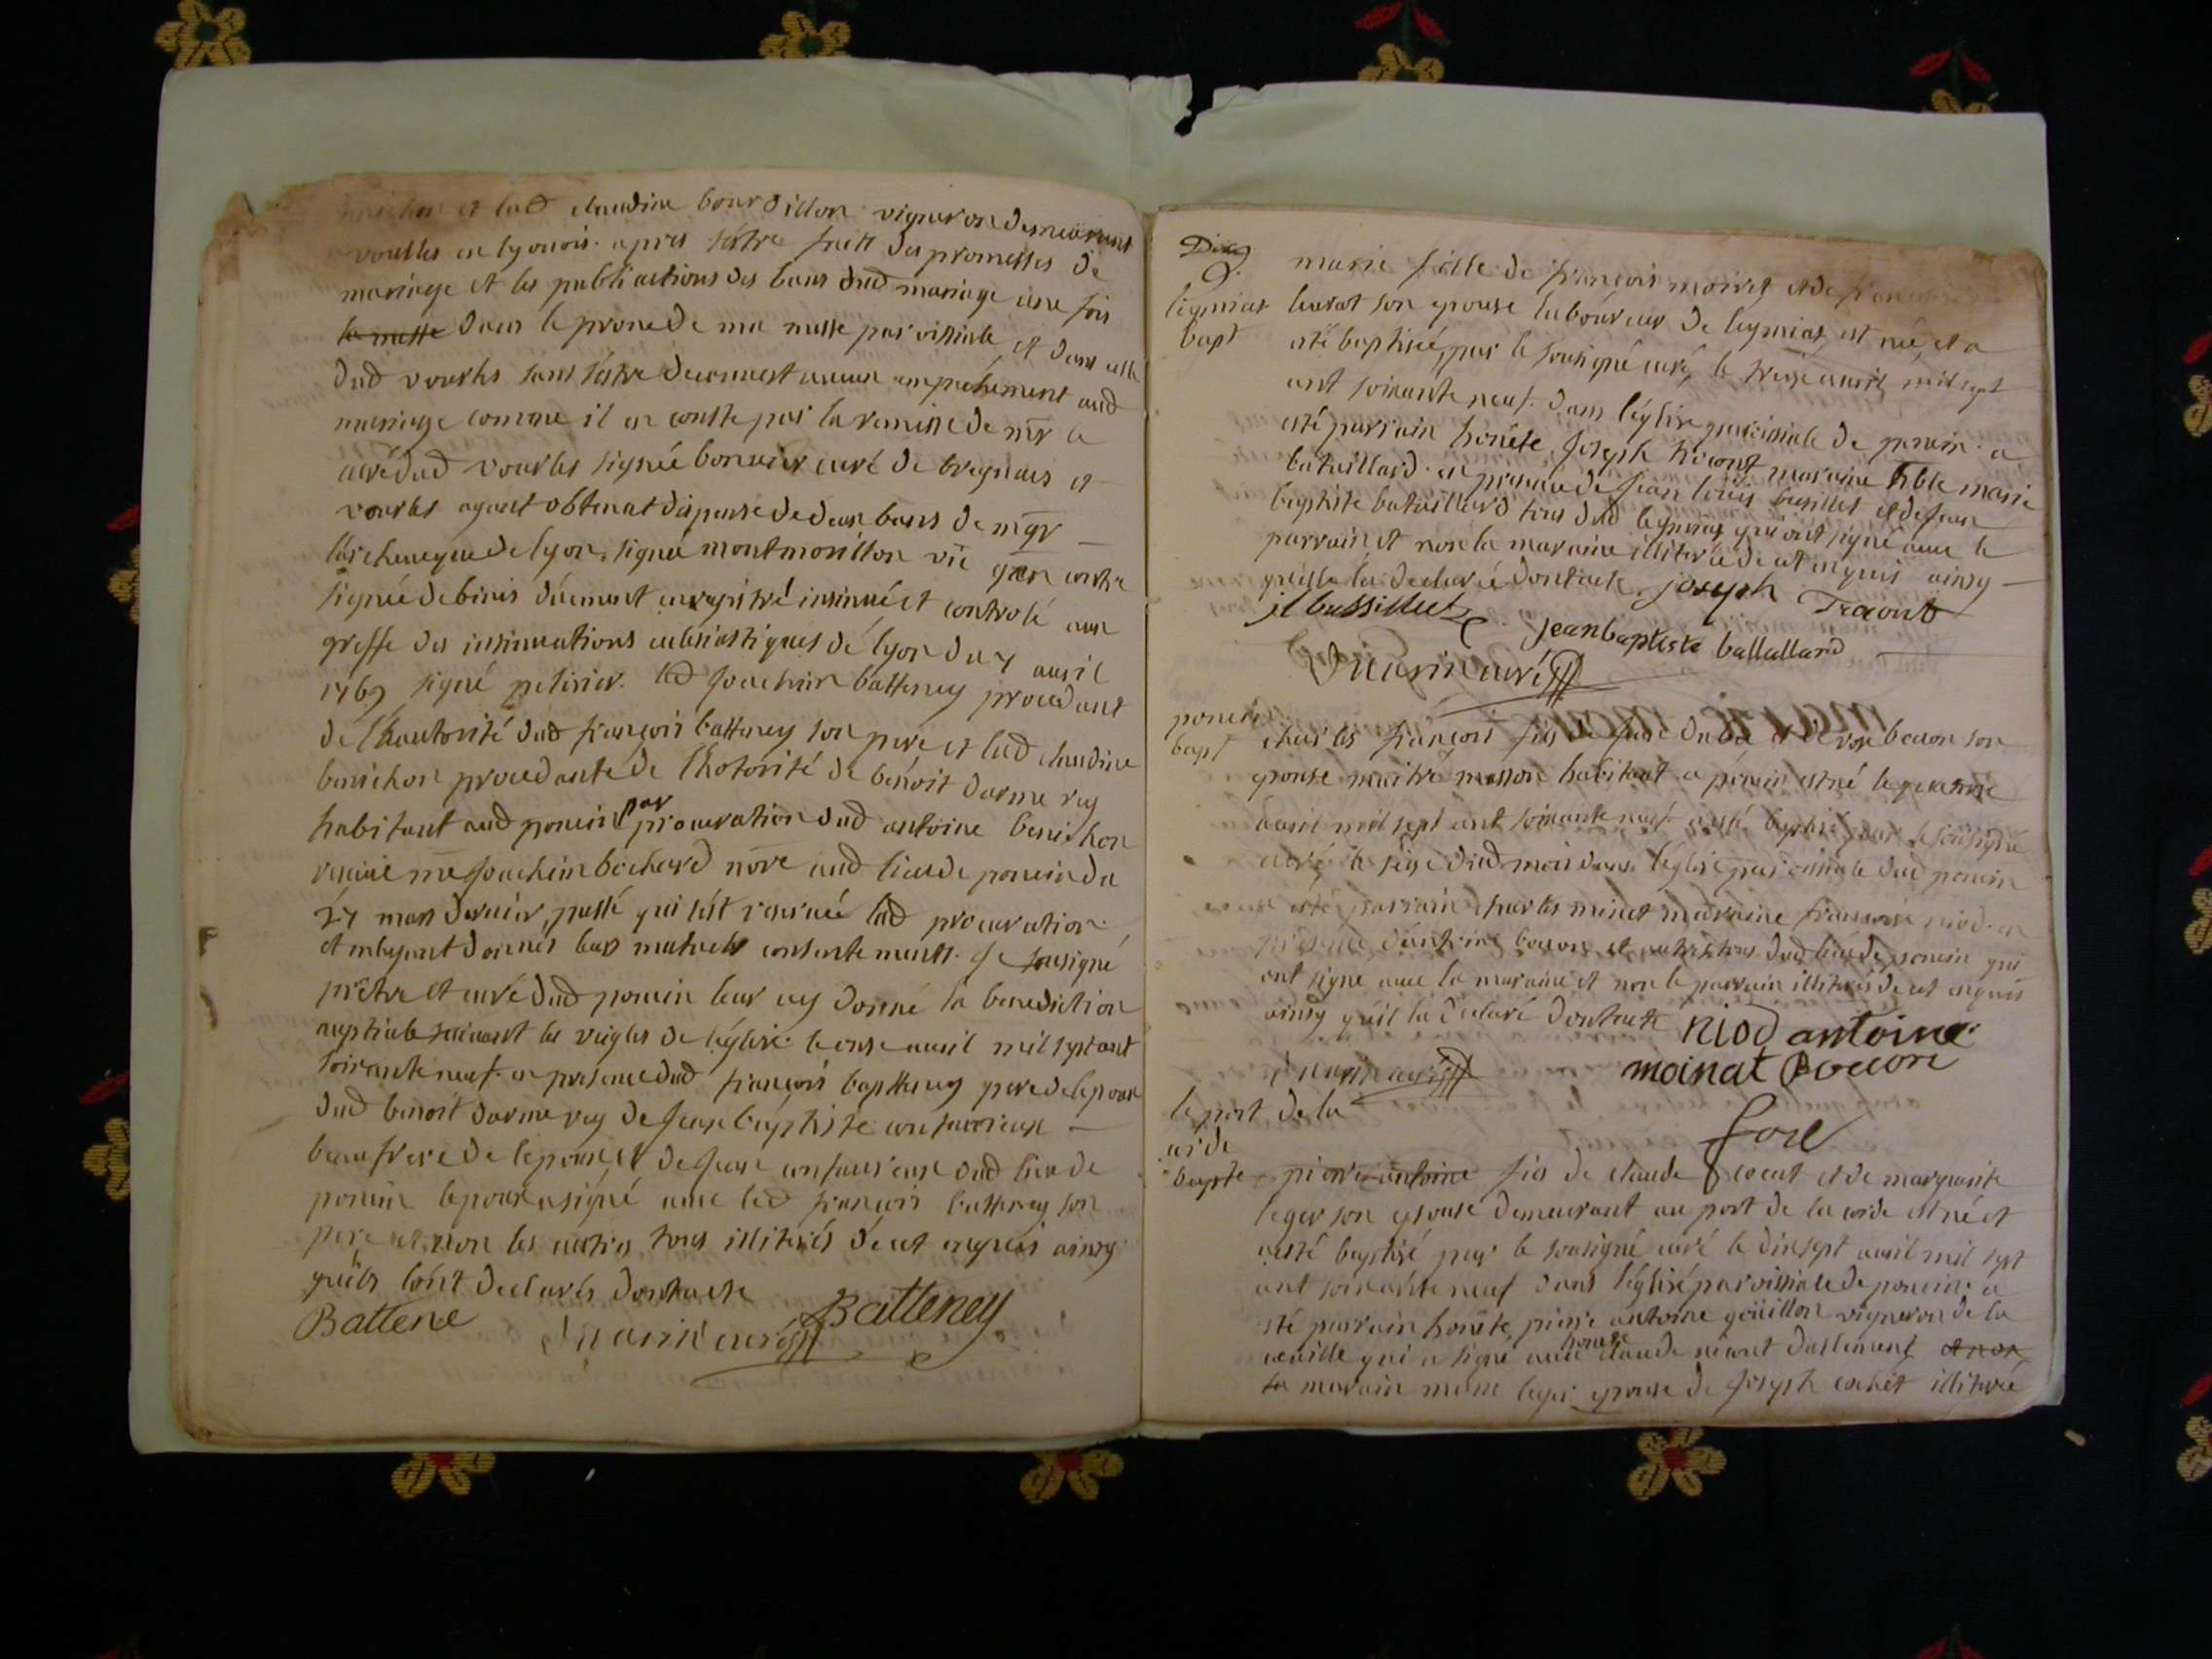 et lad claudine bourdillon vigneron demeurant
vourles en lyonois. apres sestre faitt des promesses de
mariage et les publications des bans dud mariage une fois
la messe dans le prone de ma messe paroissiale et dans celle
dud vourles sans sestre decouvert aucun empechement aud
mariage comme il en conste par la remisse de mr le
curé dud vourles signée bonnier curé de bregnais et
vourles ayant obtenut dispense de deux bans de mgr
larcheveque de lyon, signée montmorillon vic gen contre
signée debinis duement enregistré insinué et controlé aux
greffe des insinuations eclesiastiques de lyon du 7 avril
1769 signé petinier. led joachim batteney procedant
de lhautorité dud françois batteney son pere et lad claudine
benichon procedante de lhotorité de benoit darmeray
habitant aud poncin par procuration dud antoine benichon
recuie me joachim bochard nore aud lieu de poncin du
27 mars dernier passé qui sest reservée lad procuration
et mayant donnés leurs mutuels consentements. je sousigné
prêtre et curé dud poncin leur ay donné la benediction
nuptiale suivant les reigles de léglise le onze avril mil sept cent
soixante neuf en presence dud françois battteney pere de lepoux
dud benoit darmeray de jean baptiste
beaufrere de lepoux et de jean dud lieu de
poncin lepoux a signé avec led françois batteney son
pere et non les autres tous illiterés de ce enquis ainsy
quils lont declarés dontacte
Battene Batteney
curé
Diez
legniat
bapt
marie fille de françois moiret et de
son epouse laboureur de legniat est née et a
esté baptisée par le sousigné curé le treize avril mil sept
cent soixante neuf dans léglise paroissiale de poncin a
esté parrain honéte joseph tracont maraine hble marie
bataillard en presence de jean louis bussillet et de jean
baptiste bataillard tous dud legniat qui ont signé avec le
parrain et non la maraine illiterée de ce enquis ainsy
quelle la declaré dontacte. joseph Tracont
jl bussillet jean baptiste batallard
curé
poncin
bapt
charles françois fils de et de rose bocon son
epouse maitre masson habitant a poncin est né le quatorze
avril mil sept cent soixante neuf a esté baptisé par le sousigné
curé le seize dud mois dans léglise paroissiale dud poncin
a esté parrain charles minet maraine françoise niod en
presence dantoine bocon et autres tous dud lieu de poncin qui
ont signe avec la maraine et non le parrain illiterés de ce enquis
ainsy quil la declaré dontacte niod antoine
moinat Bocon
curé
le port de la
corde
bapte
pierre antoine fils de claude cocat et de marguerite
leger son epouse demeurant au port de la corde est né et
a esté baptisé par le sousigné curé le dixsept avril mil sept
cent soixante neuf dans léglise paroissiale de poncin a
esté parrain honéte pierre antoine goüillon vigneron de la
qui a signe avec honete claude et non
la marain leger epouse de joseph cochet illiterée